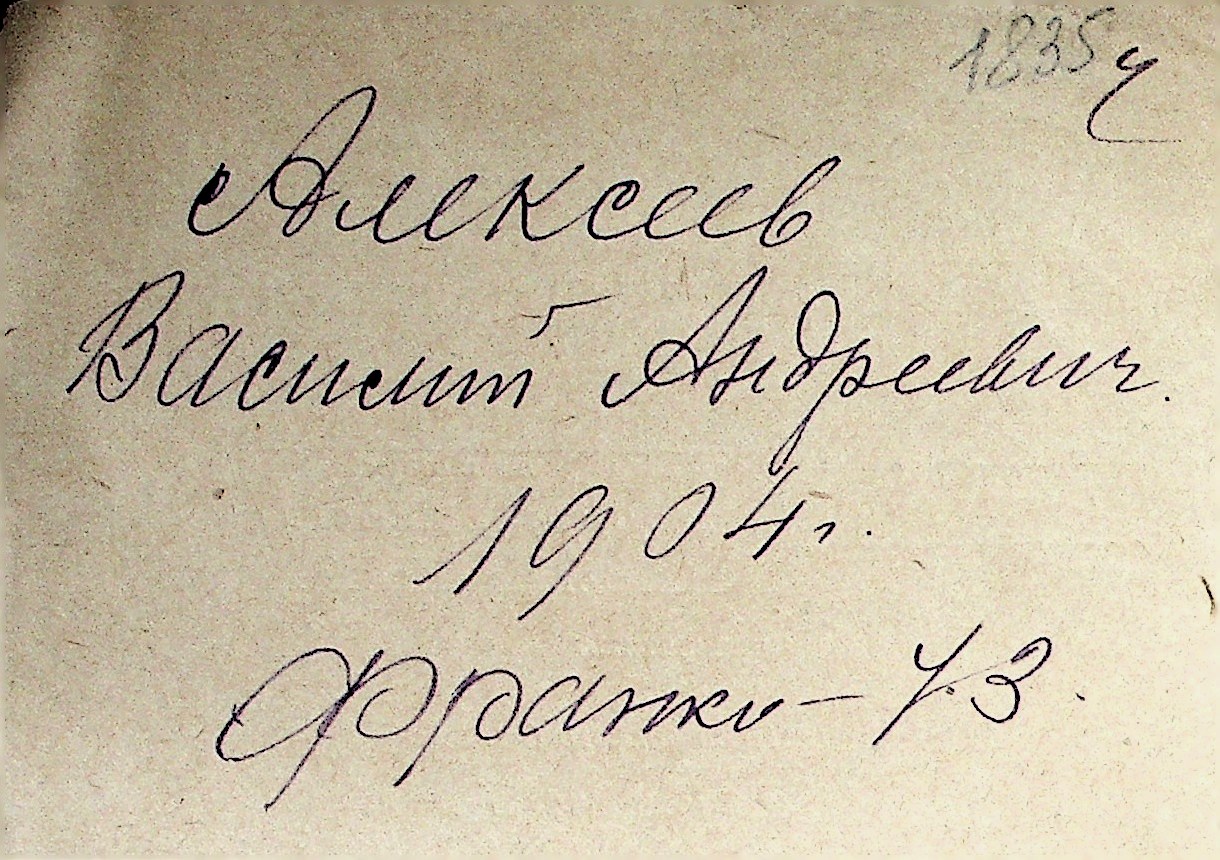 1835 ч
Алексеев
Василий Андреевич.
1904г.
Франко – 43.